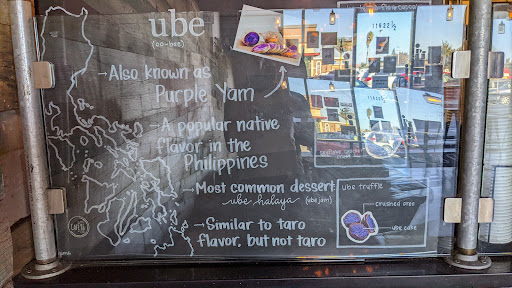 ube
(oo-beh)
→Also known as
Purple Yam
→A popular native
flavor in the
Philippines
→Most common dessert
ube halaya (ube jam)
→Similar to taro
flavor, but not taro
ube truffle
crushed oreo
ube cake